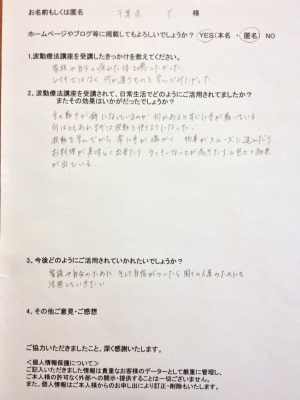 お名前もしくは匿名 千葉県 Y 様
ホームページやブログ等に掲載してもよろしいでしょうか? YES(本名・匿名) NO
1.波動療法講座を受講したきっかけを教えてください。
家族や自分の疲れた体を癒したかった
レイキではなく何か違うものを学んでみたかった
2、波動療法講座を受講されて、日常生活でどのようにご活用されてましたか?
またその効果はいかがだったでしょうか?
手の動きが癖になっているのか、何かあるとすぐに手が動いている
何はともあれまずは波動を使うようになった
波動を学んでから常に手が温かく、物事がスムーズに進んだり
お料理が美味しく出来たり ラッキーなことが起きたりと色々と効果
が出ている。
3、今後どのようにご活用されていかれたいでしょうか?
家族や自分のために、そして自信がついたら周りの人達のためにも
活用していきたい
4、その他ご意見・ご感想
ご協力いただきましたこと、深く感謝いたします。
<個人情報保護について>
ご記入いただきました情報は貴重なお客様のデーターとして厳重に管理し、
ご本人様の許可なく外部への開示・提供することは一切ございません。
また、個人情報はご本人様からのお申し出により訂正・削除もいたします。